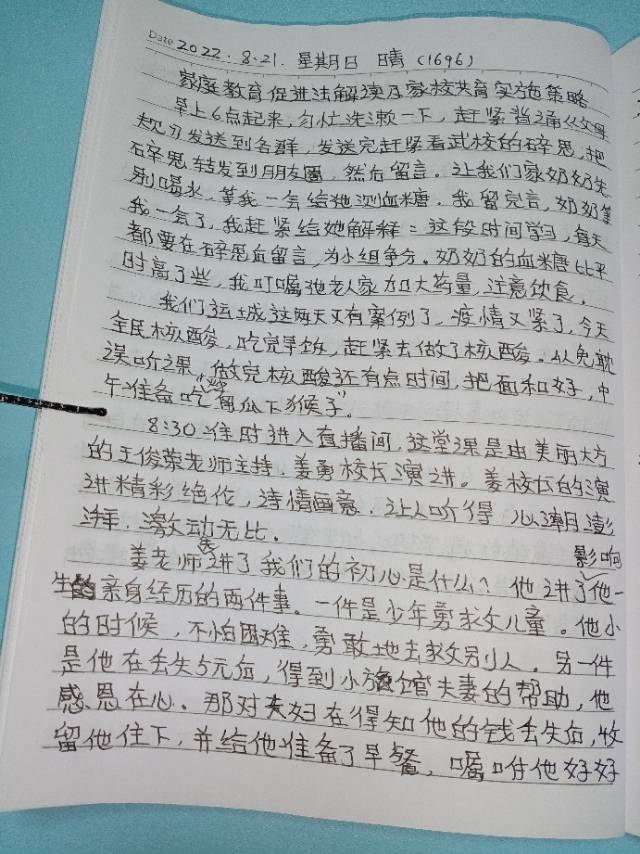 Date 2022.8.21. 星期日 晴 (1696)
家庭教育促进法解读及家校共育实施策略
早上6点起来,匆忙洗漱一下,赶紧普通父母
规习发送到各群,发送完赶紧看武校的碎思,把
碎思转发到朋友圈,然后留言。让我们家奶奶先
别喝水,等我一会给她测血糖。我留完言,奶奶等
我一会了,我赶紧给她解释:这段时间学习,每天
都要在碎思后留言,为小组争分。奶奶的血糖比平
时高了些,我叮嘱她老人家加大药量,注意饮食。
我们运城这两天又有案例了,疫情又紧了,今天
全民核酸,吃完早饭,赶紧去做了核酸。以免耽
误听课,做完核酸还有点时间,把面和好,中
午准备吃"南瓜下猴子"。
8:30准时进入直播间,这堂课是由美丽大方
的王俊荣老师主持,姜勇校长演讲。姜校长的演
讲精彩绝伦,诗情画意,让人听得心潮澎
湃,激动无比。
姜老师先讲了我们的初心是什么?他讲了影响他一
生的亲身经历的两件事。一件是少年勇救女儿童。他小
的时候,不怕困难,勇敢地去救别人。另一件
是他在丢失5元后,得到小旅馆夫妻的帮助,他
感恩在心。那对夫妇在得知他的钱丢失后,收
留他住下,并给他准备了早餐,嘱咐他好好